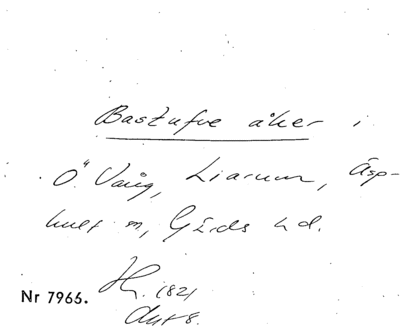 Bastufve åker i
Ö. Vång, Liarum, Äsp-
hult sn, Gärds hd.
Nr 7966. 1821
Akt 8.